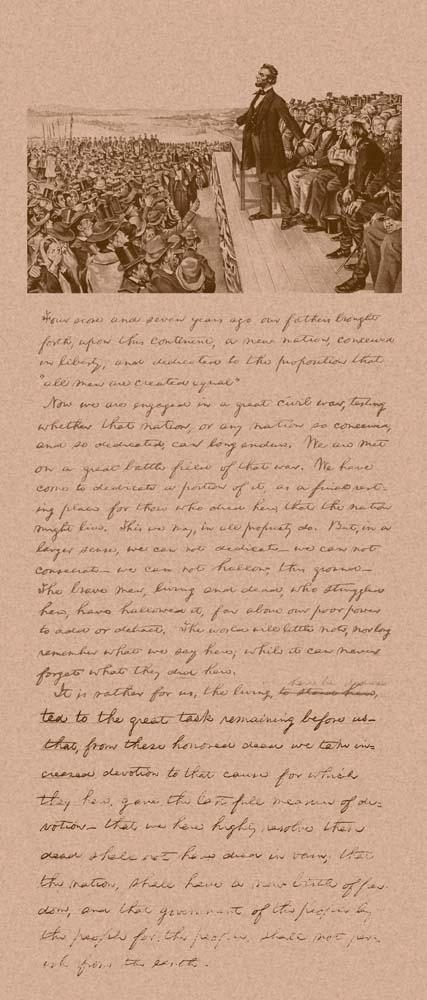 Four score and seven years ago our fathers brought
forth, upon this continent, a new nation, conceived
in liberty, and dedicated to the proposition that
"all men are created equal"
Now we are engaged in a great civil war, testing
whether that nation, or any nation so conceived,
and so dedicated, can long endure. We are met
on a great battle field of that war. We have
come to dedicate a portion of it, as a final rest-
ing place for those who died here, that the nation
might live. This we may, in all propriety do. But, in a
larger sense, we can not dedicate — we can not
consecrate — we can not hallow, this ground —
The brave men, living and dead, who struggled
here, have hallowed it, far above our poor power
to add or detract. The world will little note, nor long
remember what we say here; while it can never
forget what they did here.
It is rather for us, the living, to stand here,
here be dedica
ted to the great task remaining before us —
that, from these honored dead we take in-
creased devotion to that cause for which
they here, gave the last full measure of de-
votion — that we here highly resolve these
dead shall not have died in vain; that
the nation, shall have a new birth of free-
dom, and that government of the people by
the people for the people, shall not per-
ish from the earth.